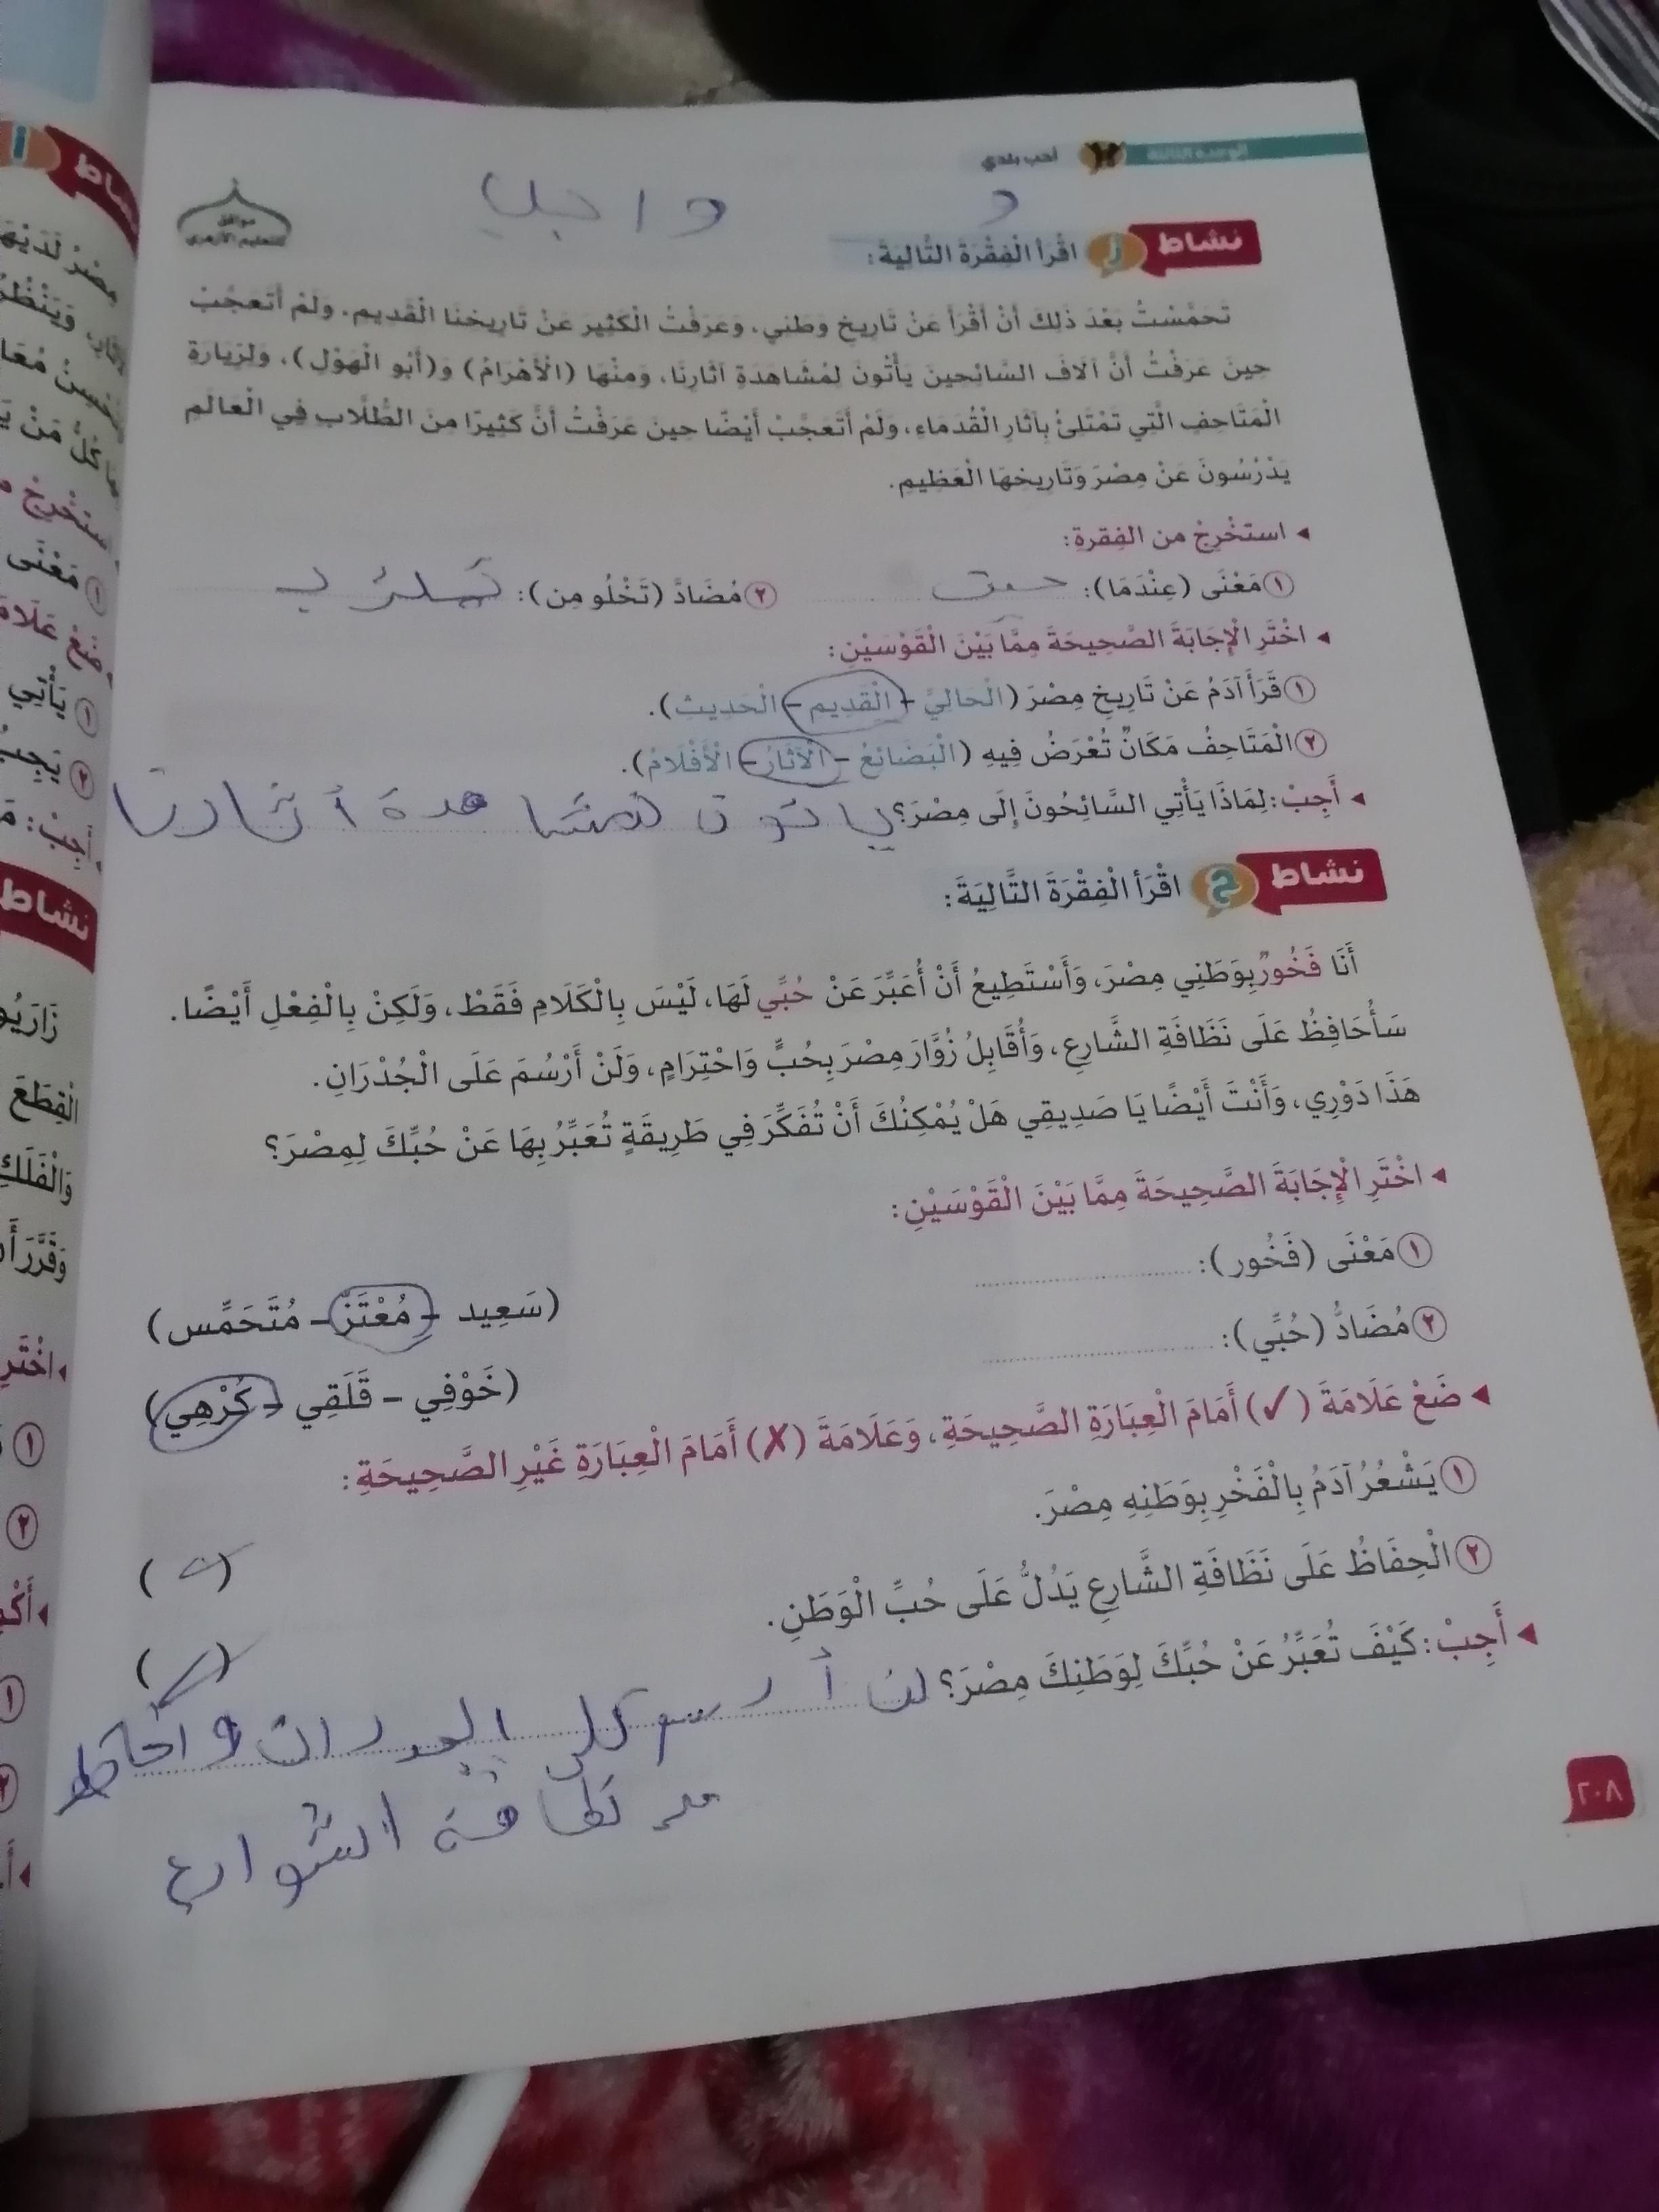 الوحدة الثالثة
أحب بلدي
واجب
موافق للتعليم الأزهري
نشاط ز اقْرَأ الْفِقْرَةَ التَّالِيَةَ:
تَحَمَّسْتُ بَعْدَ ذَلِكَ أَنْ أَقْرَأَ عَنْ تَارِيخِ وَطَنِي، وَعَرَفْتُ الْكَثِيرَ عَنْ تَارِيخِنَا الْقَدِيمِ، وَلَمْ أَتَعَجَّبْ
حِينَ عَرَفْتُ أَنَّ آلَافَ السَّائِحِينَ يَأْتُونَ لِمُشَاهَدَةِ آثَارِنَا، وَمِنْهَا (الْأَهْرَامُ) وَ(أَبُو الْهَوْلِ)، وَلِزِيَارَةِ
الْمَتَاحِفِ الَّتِي تَمْتَلِئُ بِآثَارِ الْقُدَمَاءِ، وَلَمْ أَتَعَجَّبْ أَيْضًا حِينَ عَرَفْتُ أَنَّ كَثِيرًا مِنَ الطُّلَّابِ فِي الْعَالَمِ
يَدْرُسُونَ عَنْ مِصْرَ وَتَارِيخِهَا الْعَظِيمِ.
◂ استَخْرِجْ من الفِقرةِ:
١ مَعْنَى (عِنْدَمَا): ٢ مُضَادَّ (تَخْلُو مِن):
◂ اخْتَرِ الْإِجَابَةَ الصَّحِيحَةَ مِمَّا بَيْنَ الْقَوْسَيْنِ:
١ قَرَأَ آدَمُ عَنْ تَارِيخِ مِصْرَ (الْحَالِيِّ - الْقَدِيمِ - الْحَدِيثِ).
٢ الْمَتَاحِفُ مَكَانٌ تُعْرَضُ فِيهِ (الْبَضَائِعُ - الْآثَارُ - الْأَفْلَامُ).
◂ أَجِبْ: لِمَاذَا يَأْتِي السَّائِحُونَ إِلَى مِصْرَ؟ ياتون لمشاهدة أثارنا
نشاط ح اقْرَأ الْفِقْرَةَ التَّالِيَةَ:
أَنَا فَخُورٌ بِوَطَنِي مِصْرَ، وَأَسْتَطِيعُ أَنْ أُعَبِّرَ عَنْ حُبِّي لَهَا، لَيْسَ بِالْكَلَامِ فَقَطْ، وَلَكِنْ بِالْفِعْلِ أَيْضًا.
سَأُحَافِظُ عَلَى نَظَافَةِ الشَّارِعِ، وَأُقَابِلُ زُوَّارَ مِصْرَ بِحُبٍّ وَاحْتِرَامٍ، وَلَنْ أَرْسُمَ عَلَى الْجُدْرَانِ.
هَذَا دَوْرِي، وَأَنْتَ أَيْضًا يَا صَدِيقِي هَلْ يُمْكِنُكَ أَنْ تُفَكِّرَ فِي طَرِيقَةٍ تُعَبِّرُ بِهَا عَنْ حُبِّكَ لِمِصْرَ؟
◂ اخْتَرِ الْإِجَابَةَ الصَّحِيحَةَ مِمَّا بَيْنَ الْقَوْسَيْنِ:
١ مَعْنَى (فَخُور): ..............
(سَعِيد - مُعْتَزّ - مُتَحَمِّس)
٢ مُضَادُّ (حُبِّي): ..............
(خَوْفِي - قَلَقِي - كُرْهِي)
◂ ضَعْ عَلَامَةَ (✓) أَمَامَ الْعِبَارَةِ الصَّحِيحَةِ، وَعَلَامَةَ (✗) أَمَامَ الْعِبَارَةِ غَيْرِ الصَّحِيحَةِ:
١ يَشْعُرُ آدَمُ بِالْفَخْرِ بِوَطَنِهِ مِصْرَ. (✓)
٢ الْحِفَاظُ عَلَى نَظَافَةِ الشَّارِعِ يَدُلُّ عَلَى حُبِّ الْوَطَنِ. (✓)
◂ أَجِبْ: كَيْفَ تُعَبِّرُ عَنْ حُبِّكَ لِوَطَنِكَ مِصْرَ؟ لن أرسم الجدران
نظافة الشوارع
٢٠٨